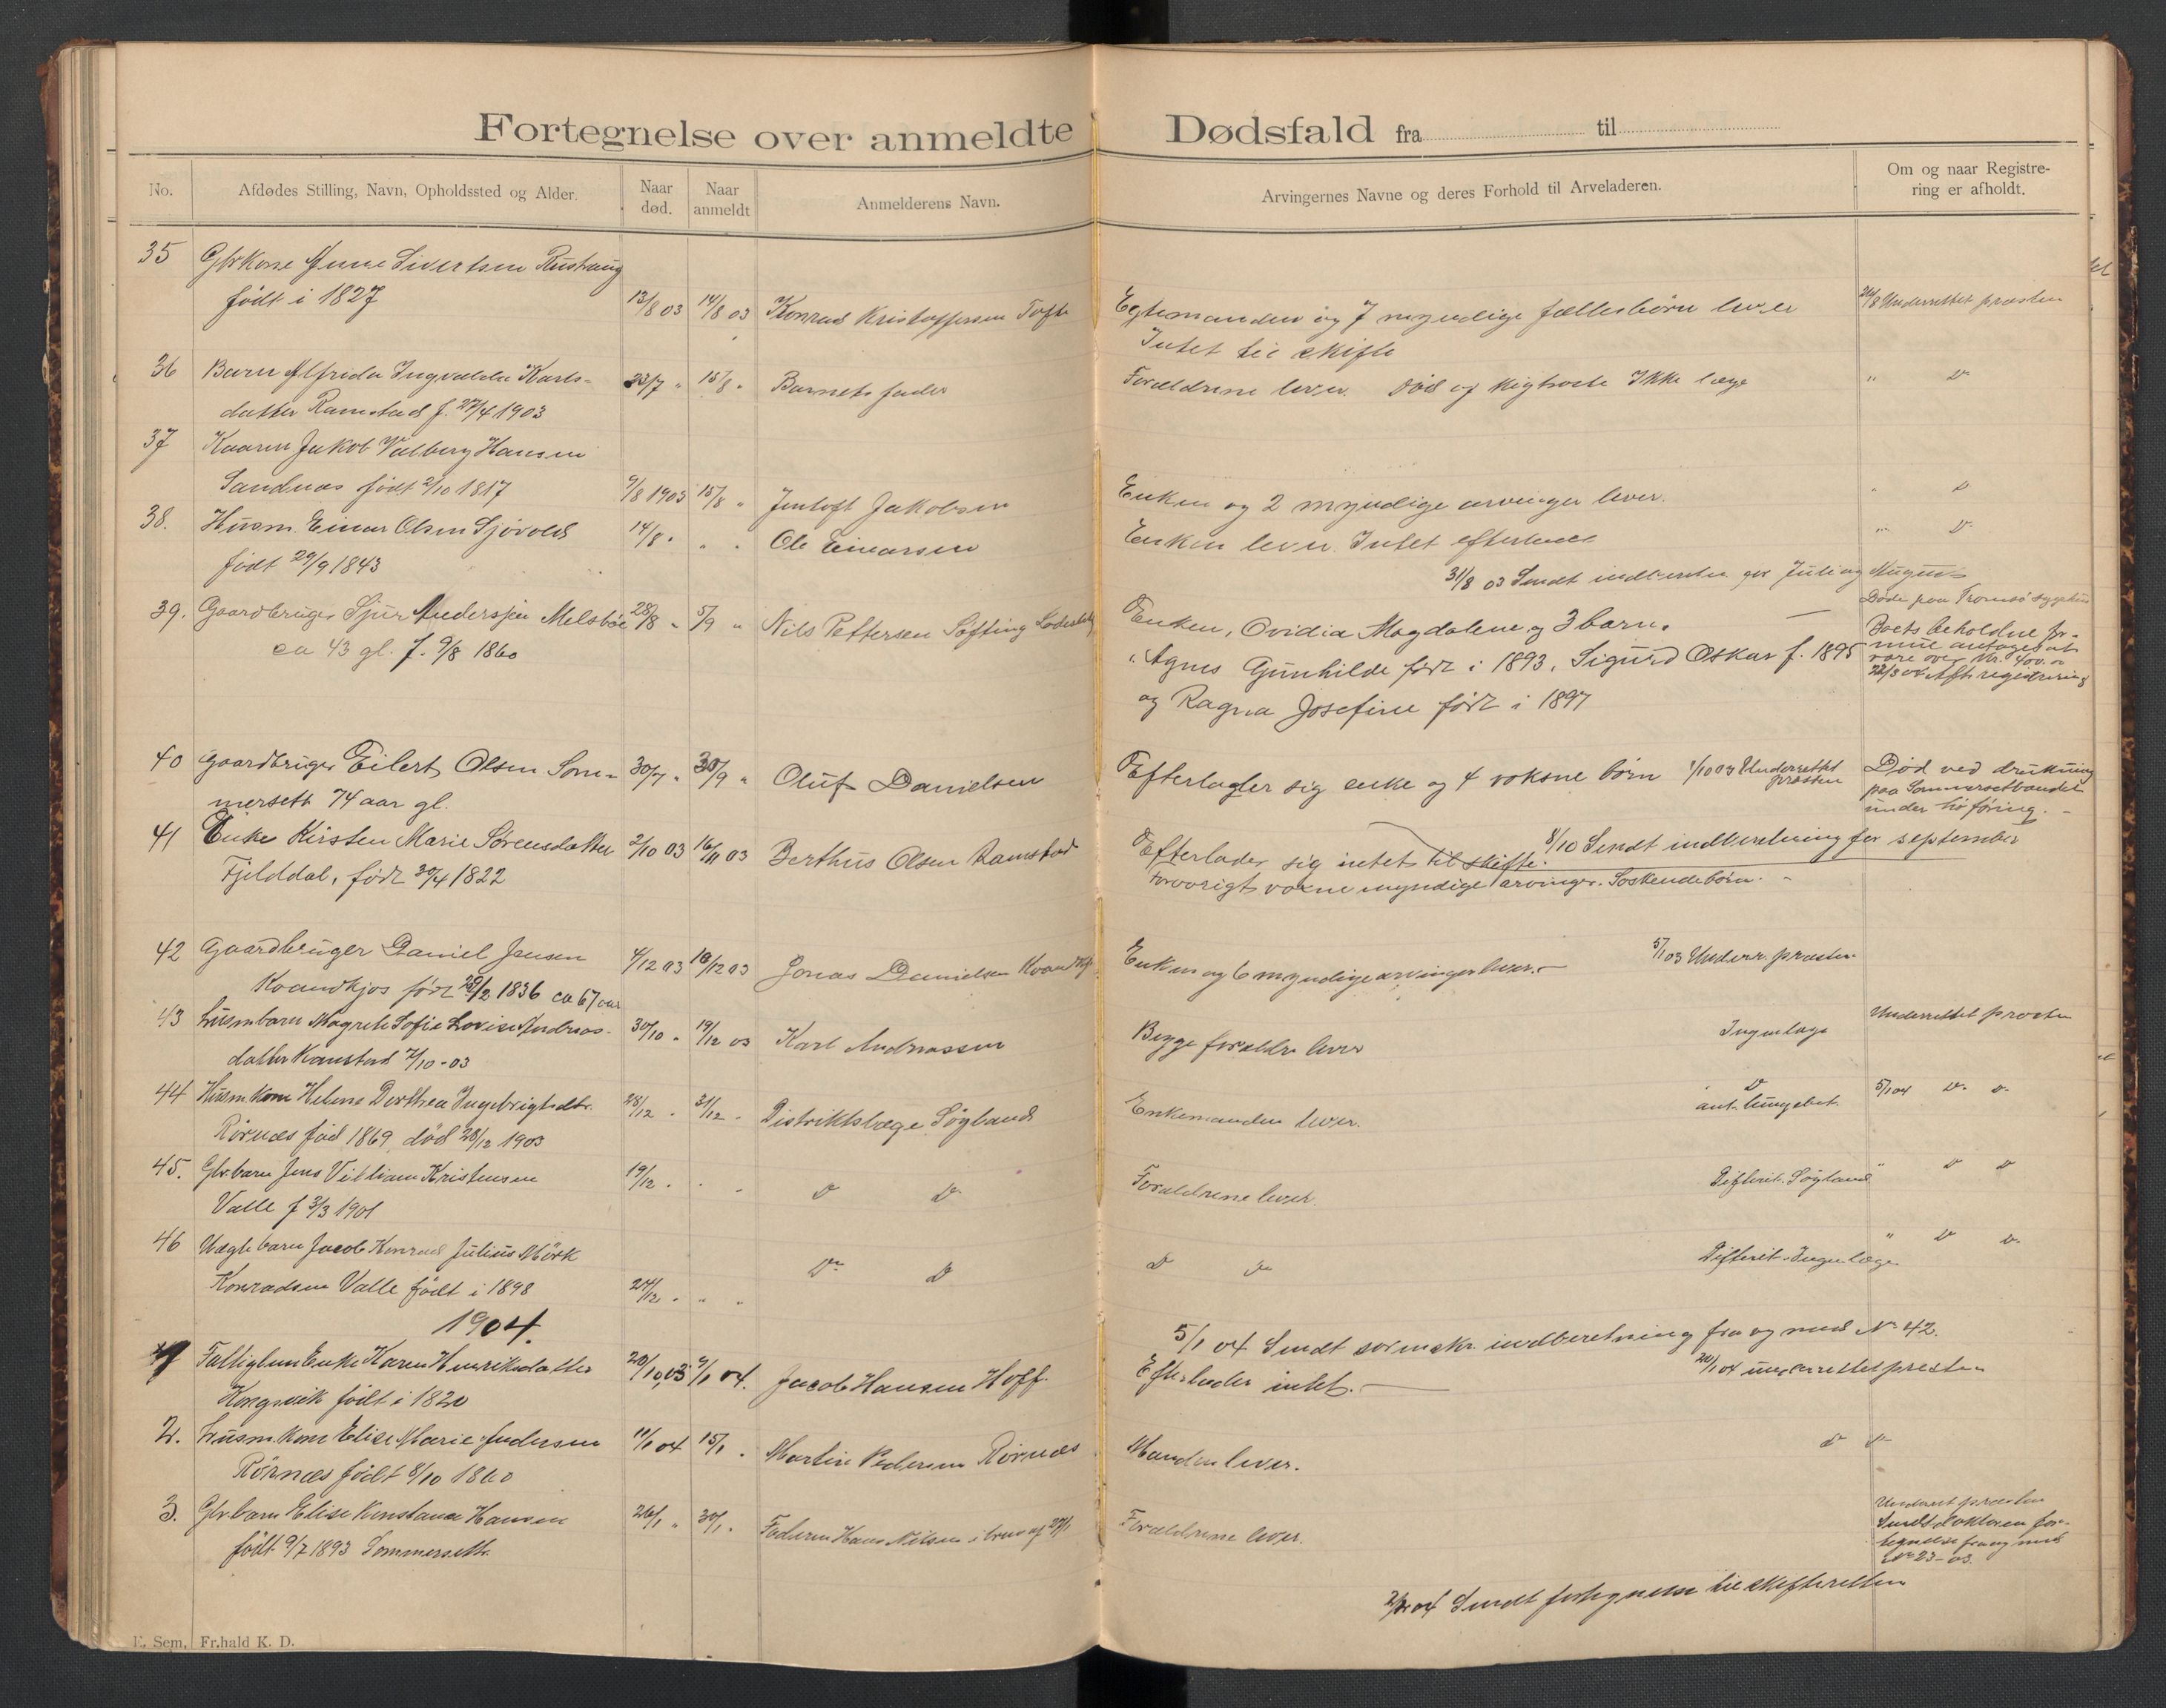 Fortegnelse over anmeldte Dødsfald fra til
No.
Afdødes Stilling, Navn, Opholdssted og Alder.
Naar død.
Naar anmeldt
Anmelderens Navn.
Arvingernes Navne og deres Forhold til Arveladeren.
Om og naar Registre-
ring er afholdt.
35 Gbrkone Anne Sivertsen
født i 1827 13/8 03 14/8 03 Konrad Kristoffersen Toft Egtemanden og 7 myndige fællesbørn lever 26/8 Underrettet præsten
Intet til skifte
36 Barn Alfrida Ingvalda Karls- 23/7 " 15/8 " Barnets fader Forældrene lever. Død af kighoste Ikke læge " D
datter Ramstad f. 27/4 1903
37 Kaarm Jakob Valberg Hansen
Sandnæs født 2/10 1817 9/8 1903 15/8 " Jentoft Jakobsen Enken og 2 myndige arvinger lever. " D
38. Husm. Einar Olsen Sjövold 14/8 " " " Ole Einarsen Enken lever. Intet efterlade " D
født 29/9 1843
31/8 03 Sendt indberetn. for Juli og August
Døde paa Tromsö sygehus
39. Gaardbruger Sjur Anderssen Melsböe 28/8 " 5/9 " Nils Pettersen Söfting Enken, Ovidia Magdalene og 3 barn.
ca 43 gl. f. 9/8 1860 Agnes Gunhilde født i 1893, Sigurd Oskar f. 1895
og Ragna Josefine født i 1897
Boets beholdne for-
mue antages at
være over Kr. 400.
registrering
40 Gaardbruger Eilert Olsen Som- 30/7 " 30/9 " Oluf Danielsen Efterlader sig enke og 4 voksne børn 1/10 03 Underrettet præsten
mersett 74 aar gl.
Död ved drukning
paa Sommersetvandet
under höføring.
8/10 Sendt indberetning for september
41 Enke Kirsten Marie Sørensdatter 2/10 03 16/11 03 Berthus Olsen Ramstad Efterlader sig intet til skifte.
Fjelddal, født 30/4 1822 forøvrigt voxne myndige arvinger. Søskendebørn.
42 Gaardbruger Daniel Jensen 4/12 03 18/12 03 Jonas Danielsen Enken og 6 myndige arvinger lever. 5/1 03 Underr. præsten
Kvandkjos født 28/2 1836 ca 67 aar
43 Husmbarn Magrete Sofie Lovise Andreas- 30/10 " 19/12 03 Karl Andreassen Begge forældre lever Ingen læge Underrettet præsten
datter Kanstad 7/10-03
44 Husmkone Helene Dorthea Ingebrigtsdtr. 28/12 " 31/12 " Distriktslæge Søgland Enkemanden lever. D ant. lungebet. 5/1 04 D D
Rörnæs föd 1869, död 28/12 1903
45. Gbr.barn Jens Villiam Kristensen 19/12 " " " D D Forældrene lever. Difterit. Søgland " D D
Valle f 3/3 1901
46 Uægte barn Jacob Konrad Julius Mörk D D D D Difterit. Ingen læge " D D
Konradsen Valle født i 1898 24/12 " " "
1904.
5/1 04 Sendt sorenskr. indberetning fra og med No 42.
1 Fattiglem Enke Karen Henriksdatter 28/10,03 9/1 04. Jacob Hansen Hoff. Efterlader intet. 20/1 04 underrettet præsten
Kongsvik født i 1820
2. Husm.kone Elise Marie Andersen 11/1 04 15/1 " Martin Pedersen Rörnæs Manden lever. D D
Rörnæs født 8/10 1860
3. Gbr.barn Elise Konstance Hansen 26/1 " 30/1 " Faderen Hans Nilsen i brev af 27/1 Forældrene lever.
født 9/7 1893 Sommerseth.
Underret præsten
Sendt doktoren for-
tegnelse fra og med
No 23-03.
04 Sendt fortegnelse til skifteretten
E. Sem, Fr.hald K. D.